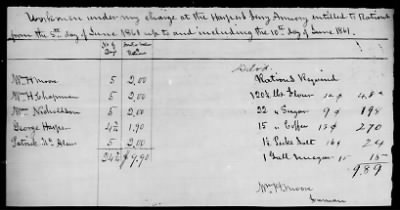 Workmen under my charge at the Harpers Ferry Armory entitled to Rations
from the 5th day of June 1861 up to and including the 10th day of June 1861.
No of Days
Rations
Wm H Moore 5 2,00
Wm H Chapman 5 2,00
Wm Nicholdson 5 2,00
George Harper 4¾ 1.90
Patrick McAleer 5 2,00
24¾ $9,90
Rations Required
lbs Flour
22 " Sugar 9 198
15 " Coffee 18¢ 270
Pecks Salt 16¢ 24
1 Gall Vinegar 15 15
9.89
Wm H Moore
Foreman